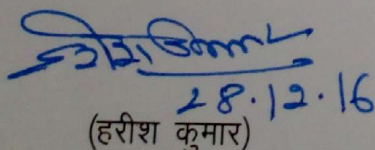 28.12.16
(हरीश कुमार)